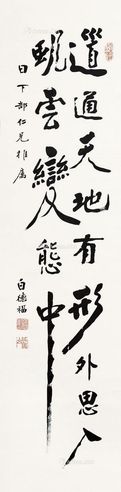 道通天地有形外思入
風雲變態中
日下部仁兄雅属
白德福